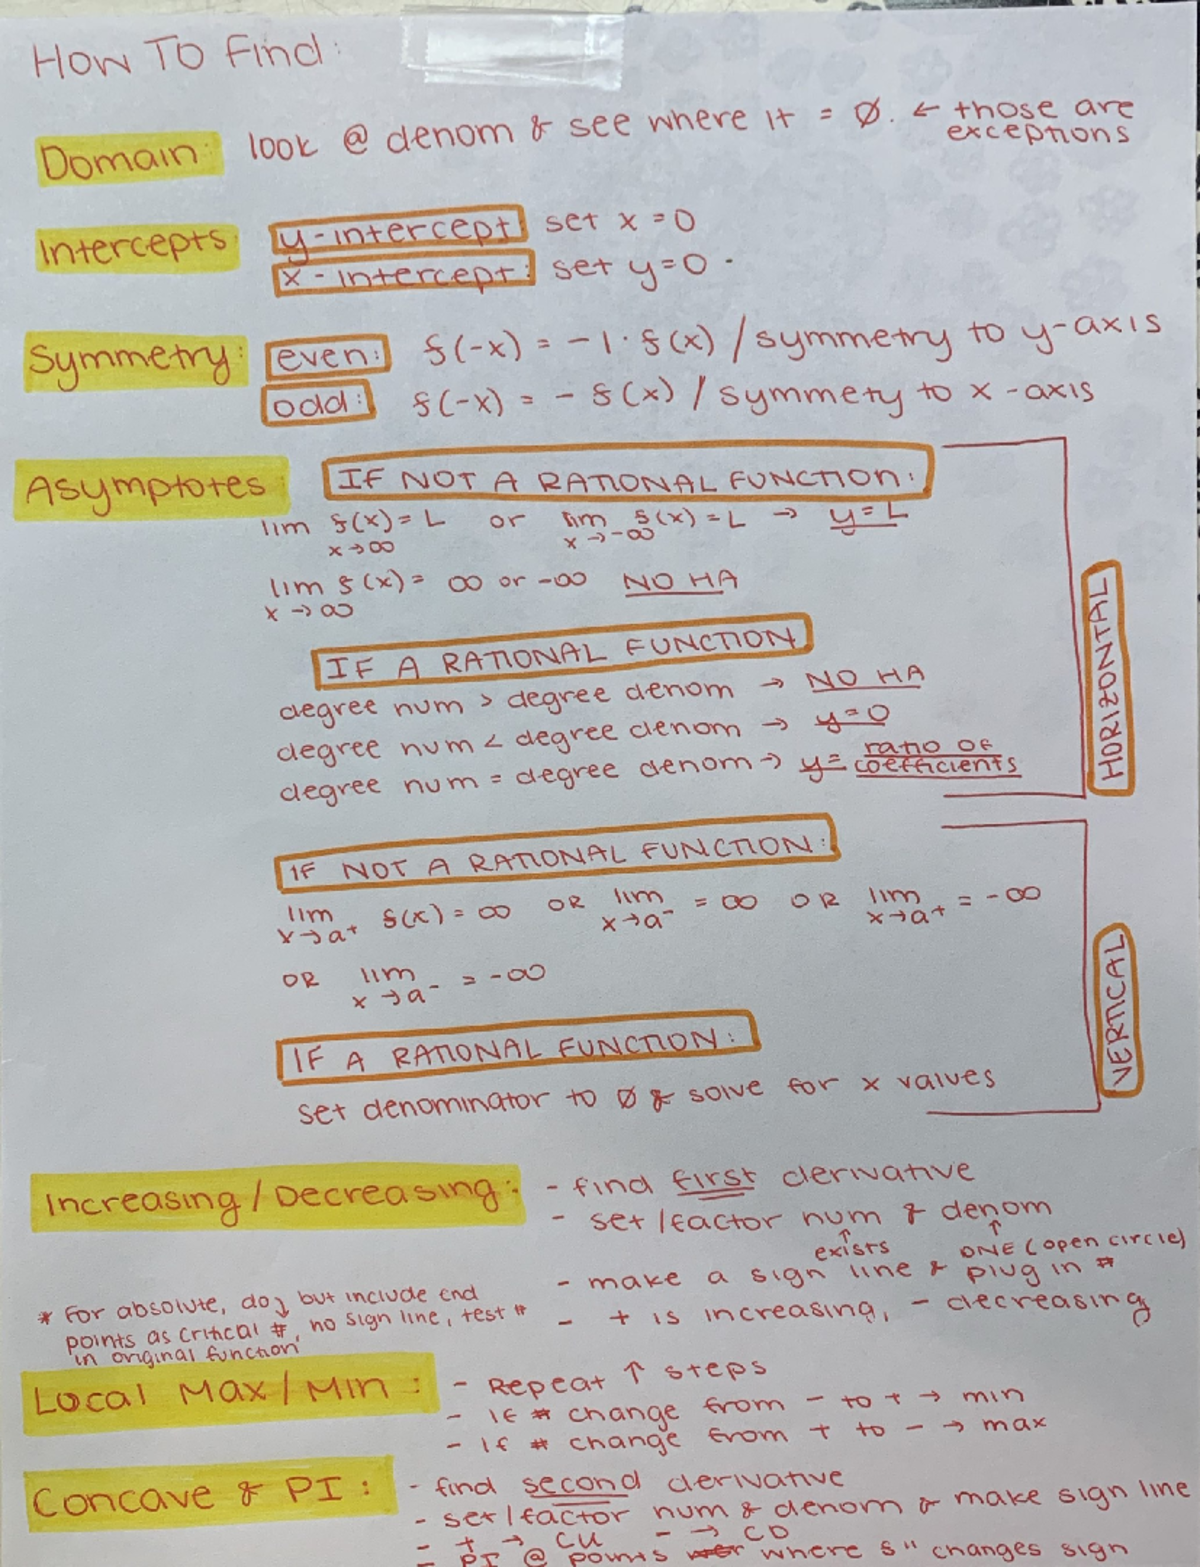 HOW TO Find:
Domain: look @ denom & see where it = Ø. ← those are exceptions
Intercepts y-intercept: set x = 0
x-intercept: set y=0
Symmetry: even: f(-x) = -1·f(x) / symmetry to y-axis
odd: f(-x) = - f(x) / symmety to x-axis
Asymptotes IF NOT A RATIONAL FUNCTION:
lim x→∞ f(x) = L or lim x→-∞ f(x) = L → y=L
lim x→∞ f(x) = ∞ or -∞ NO HA
IF A RATIONAL FUNCTION
degree num > degree denom → NO HA
degree num < degree denom → y=0
degree num = degree denom → y= ratio of coefficients
HORIZONTAL
IF NOT A RATIONAL FUNCTION:
lim x→a⁺ f(x) = ∞ OR lim x→a⁻ = ∞ OR lim x→a⁺ = -∞
OR lim x→a⁻ = -∞
IF A RATIONAL FUNCTION:
set denominator to Ø & solve for x values
VERTICAL
Increasing/Decreasing: - find first derivative
- set/factor num & denom
↑ exists ↑ DNE (open circle)
- make a sign line & plug in #
- + is increasing, - decreasing
* For absolute, do↓ but include end
points as critical #, no sign line, test #
in original function
Local Max/Min: - Repeat ↑ steps
- If # change from - to + → min
- If # change from + to - → max
Concave & PI: - find second derivative
- set/factor num & denom & make sign line
- + → CU - → CD
- PI @ points where f" changes sign